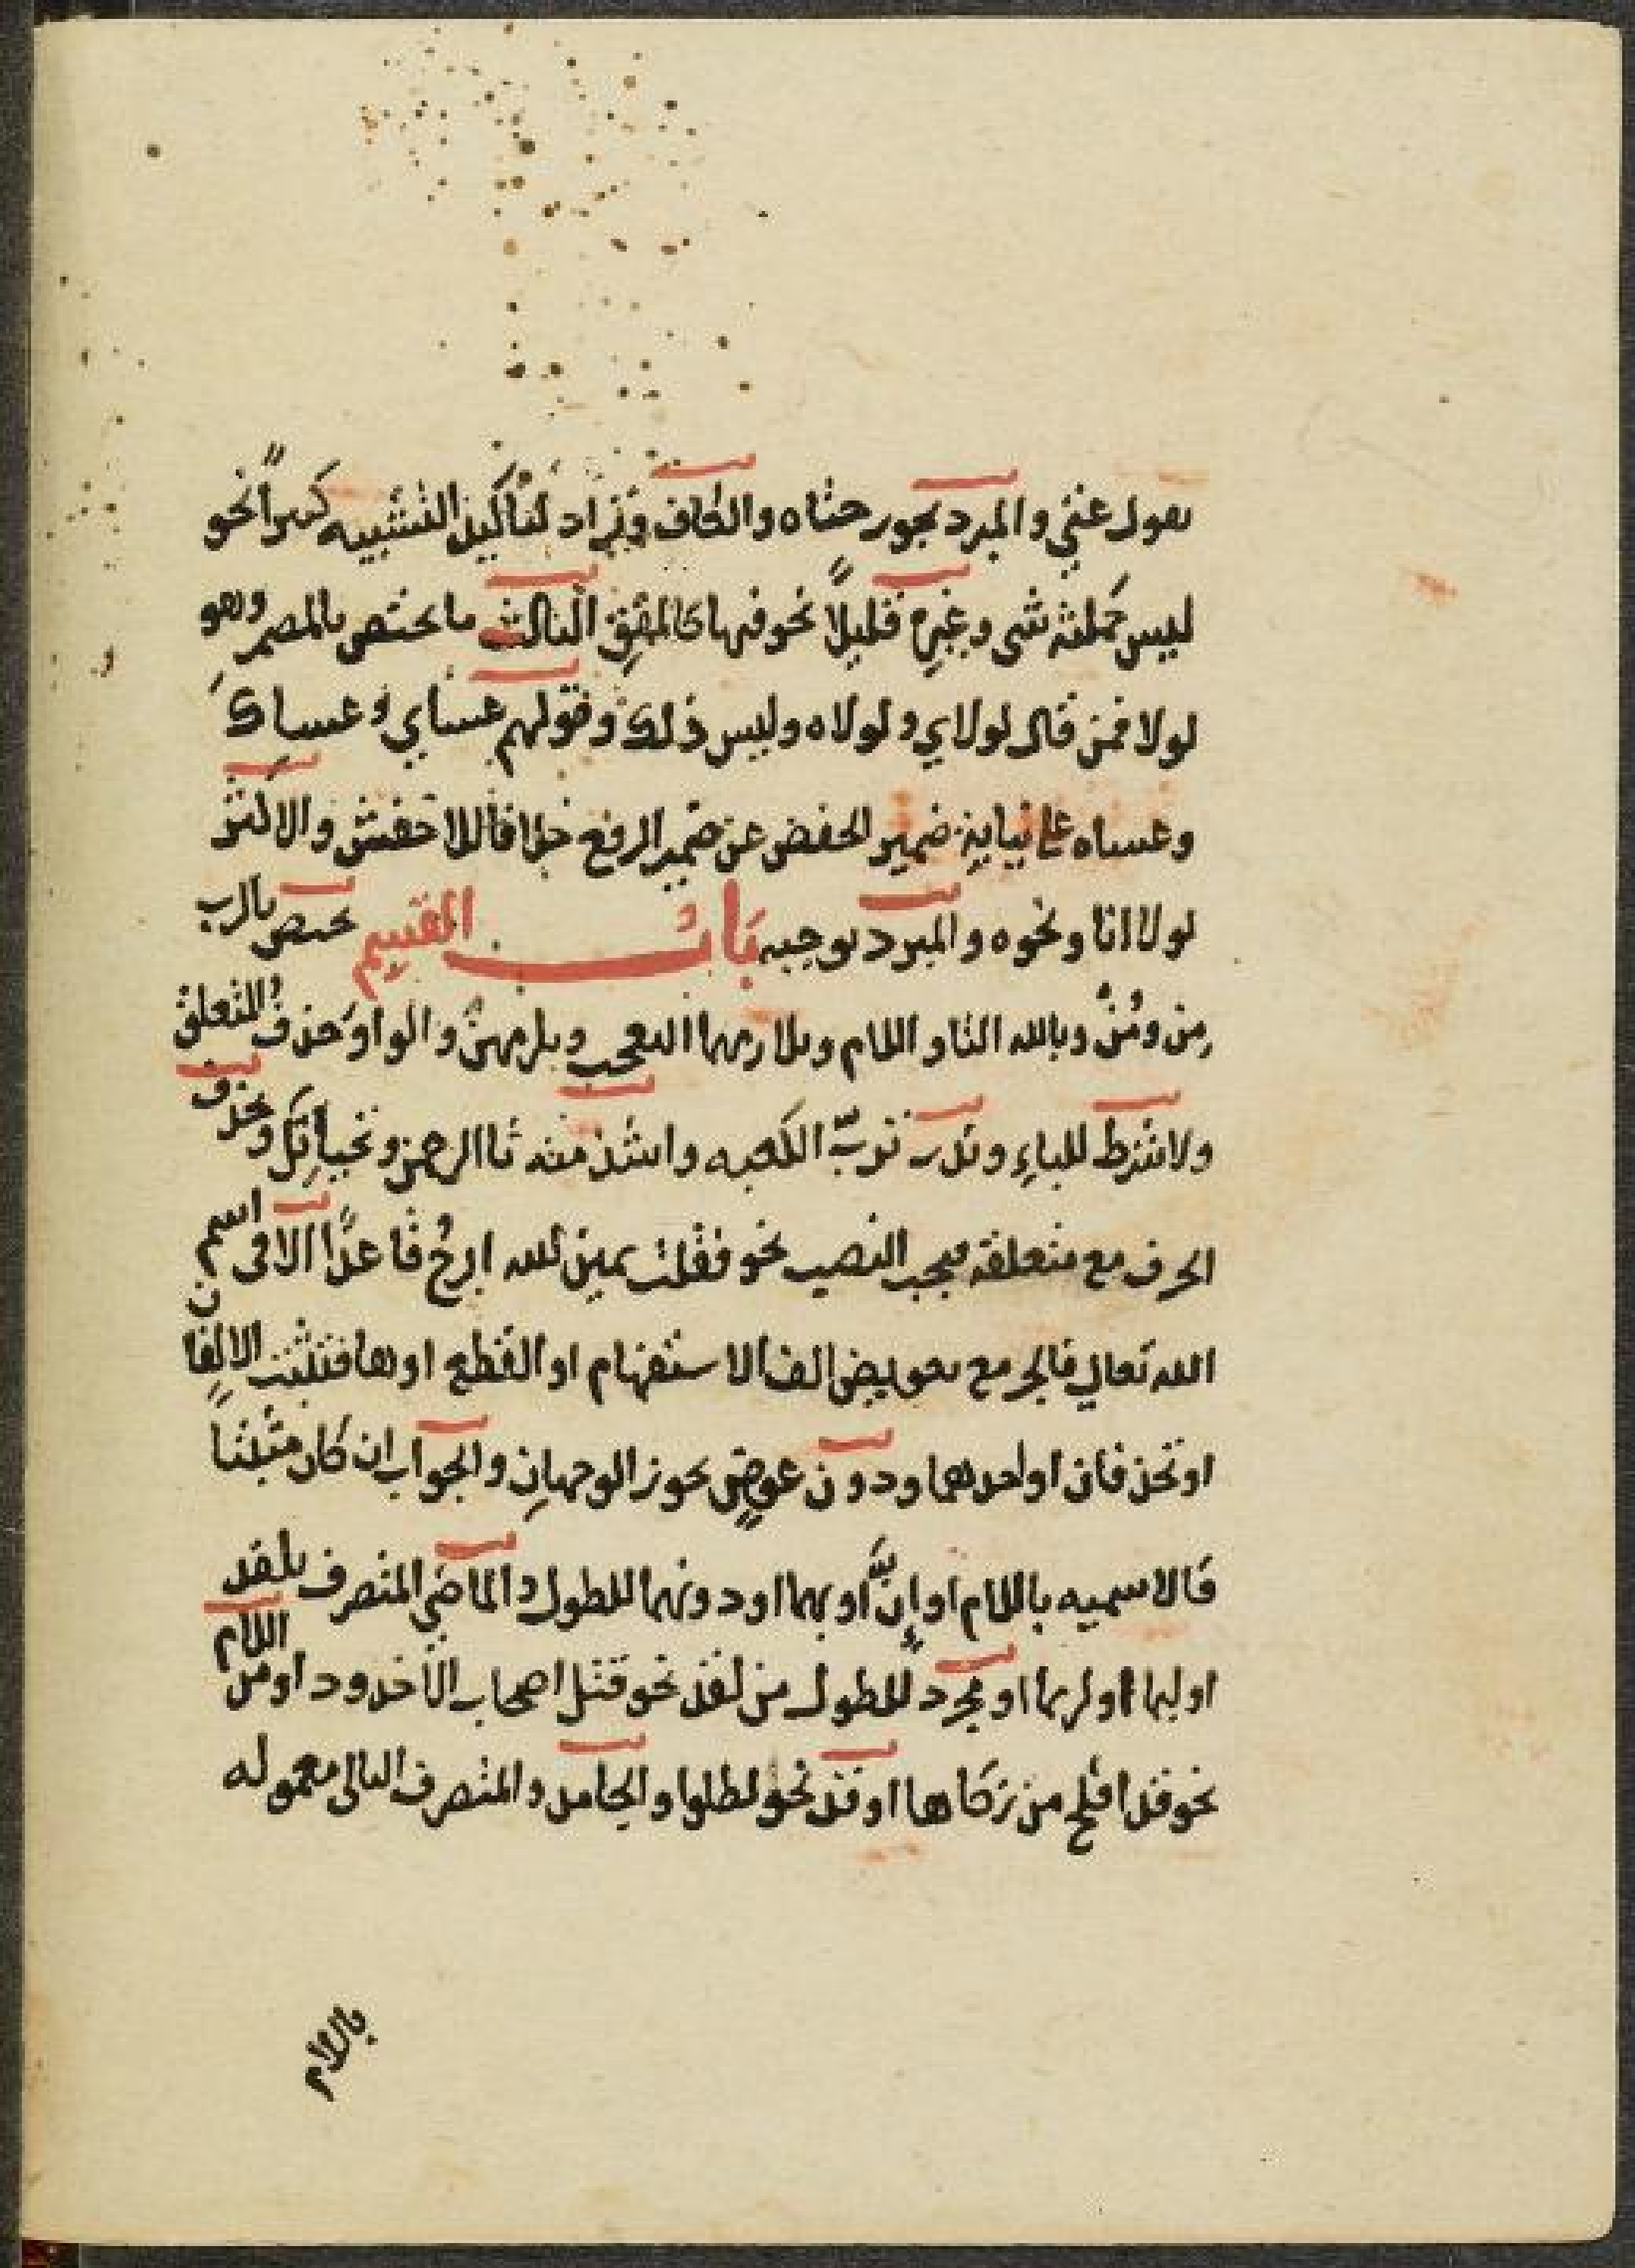 يقول عنثي والمبرد يجوز حتاه والكاف وتزاد لتاكيد التشبيه كثيرًا نحو
ليس كمثله شي وغيره قليلًا نحو فيها كالمقق الثالث ما يختص بالمضمر وهو
لولا فمن قال لولاي ولولاه وليس ذلك وقولهم عساي وعساك
وعساه علي نيابة ضمير الخفض عن ضمير الرفع خلافا للاخفش والاكثر
لولا انا ونحوه والمبرد يوجبه باب القسم يختص بالرب
من ومُن وبالله التا واللام ويلازمها التعجب ويلزمهن والواو حذف المتعلق
ولا تشترط للباء وندر تربّ الكعبه واشذ منه تا الرحمن وتحياتك وبحذف
الحرف مع متعلقه فيجب النصب نحو فقلت يمين الله ابرح قاعدًا الا في اسم
الله تعالي فالجر مع تعويض الف الاستفهام او القطع او ها فتثبت الالفان
او تحذفان او احدهما ودون عوض يجوز الوجهان والجواب ان كان مثبتا
فالاسميه باللام او إنّ او بهما او دونهما للطول والماضي المتصرف بلقد
اوليها او لربما او مجرد للطول من لقد نحو قتل اصحاب الاخدود او من اللام
نحو قد افلح من زكاها او قد نحو لظلوا والجامد والمتصرف التالي معموله
باللام